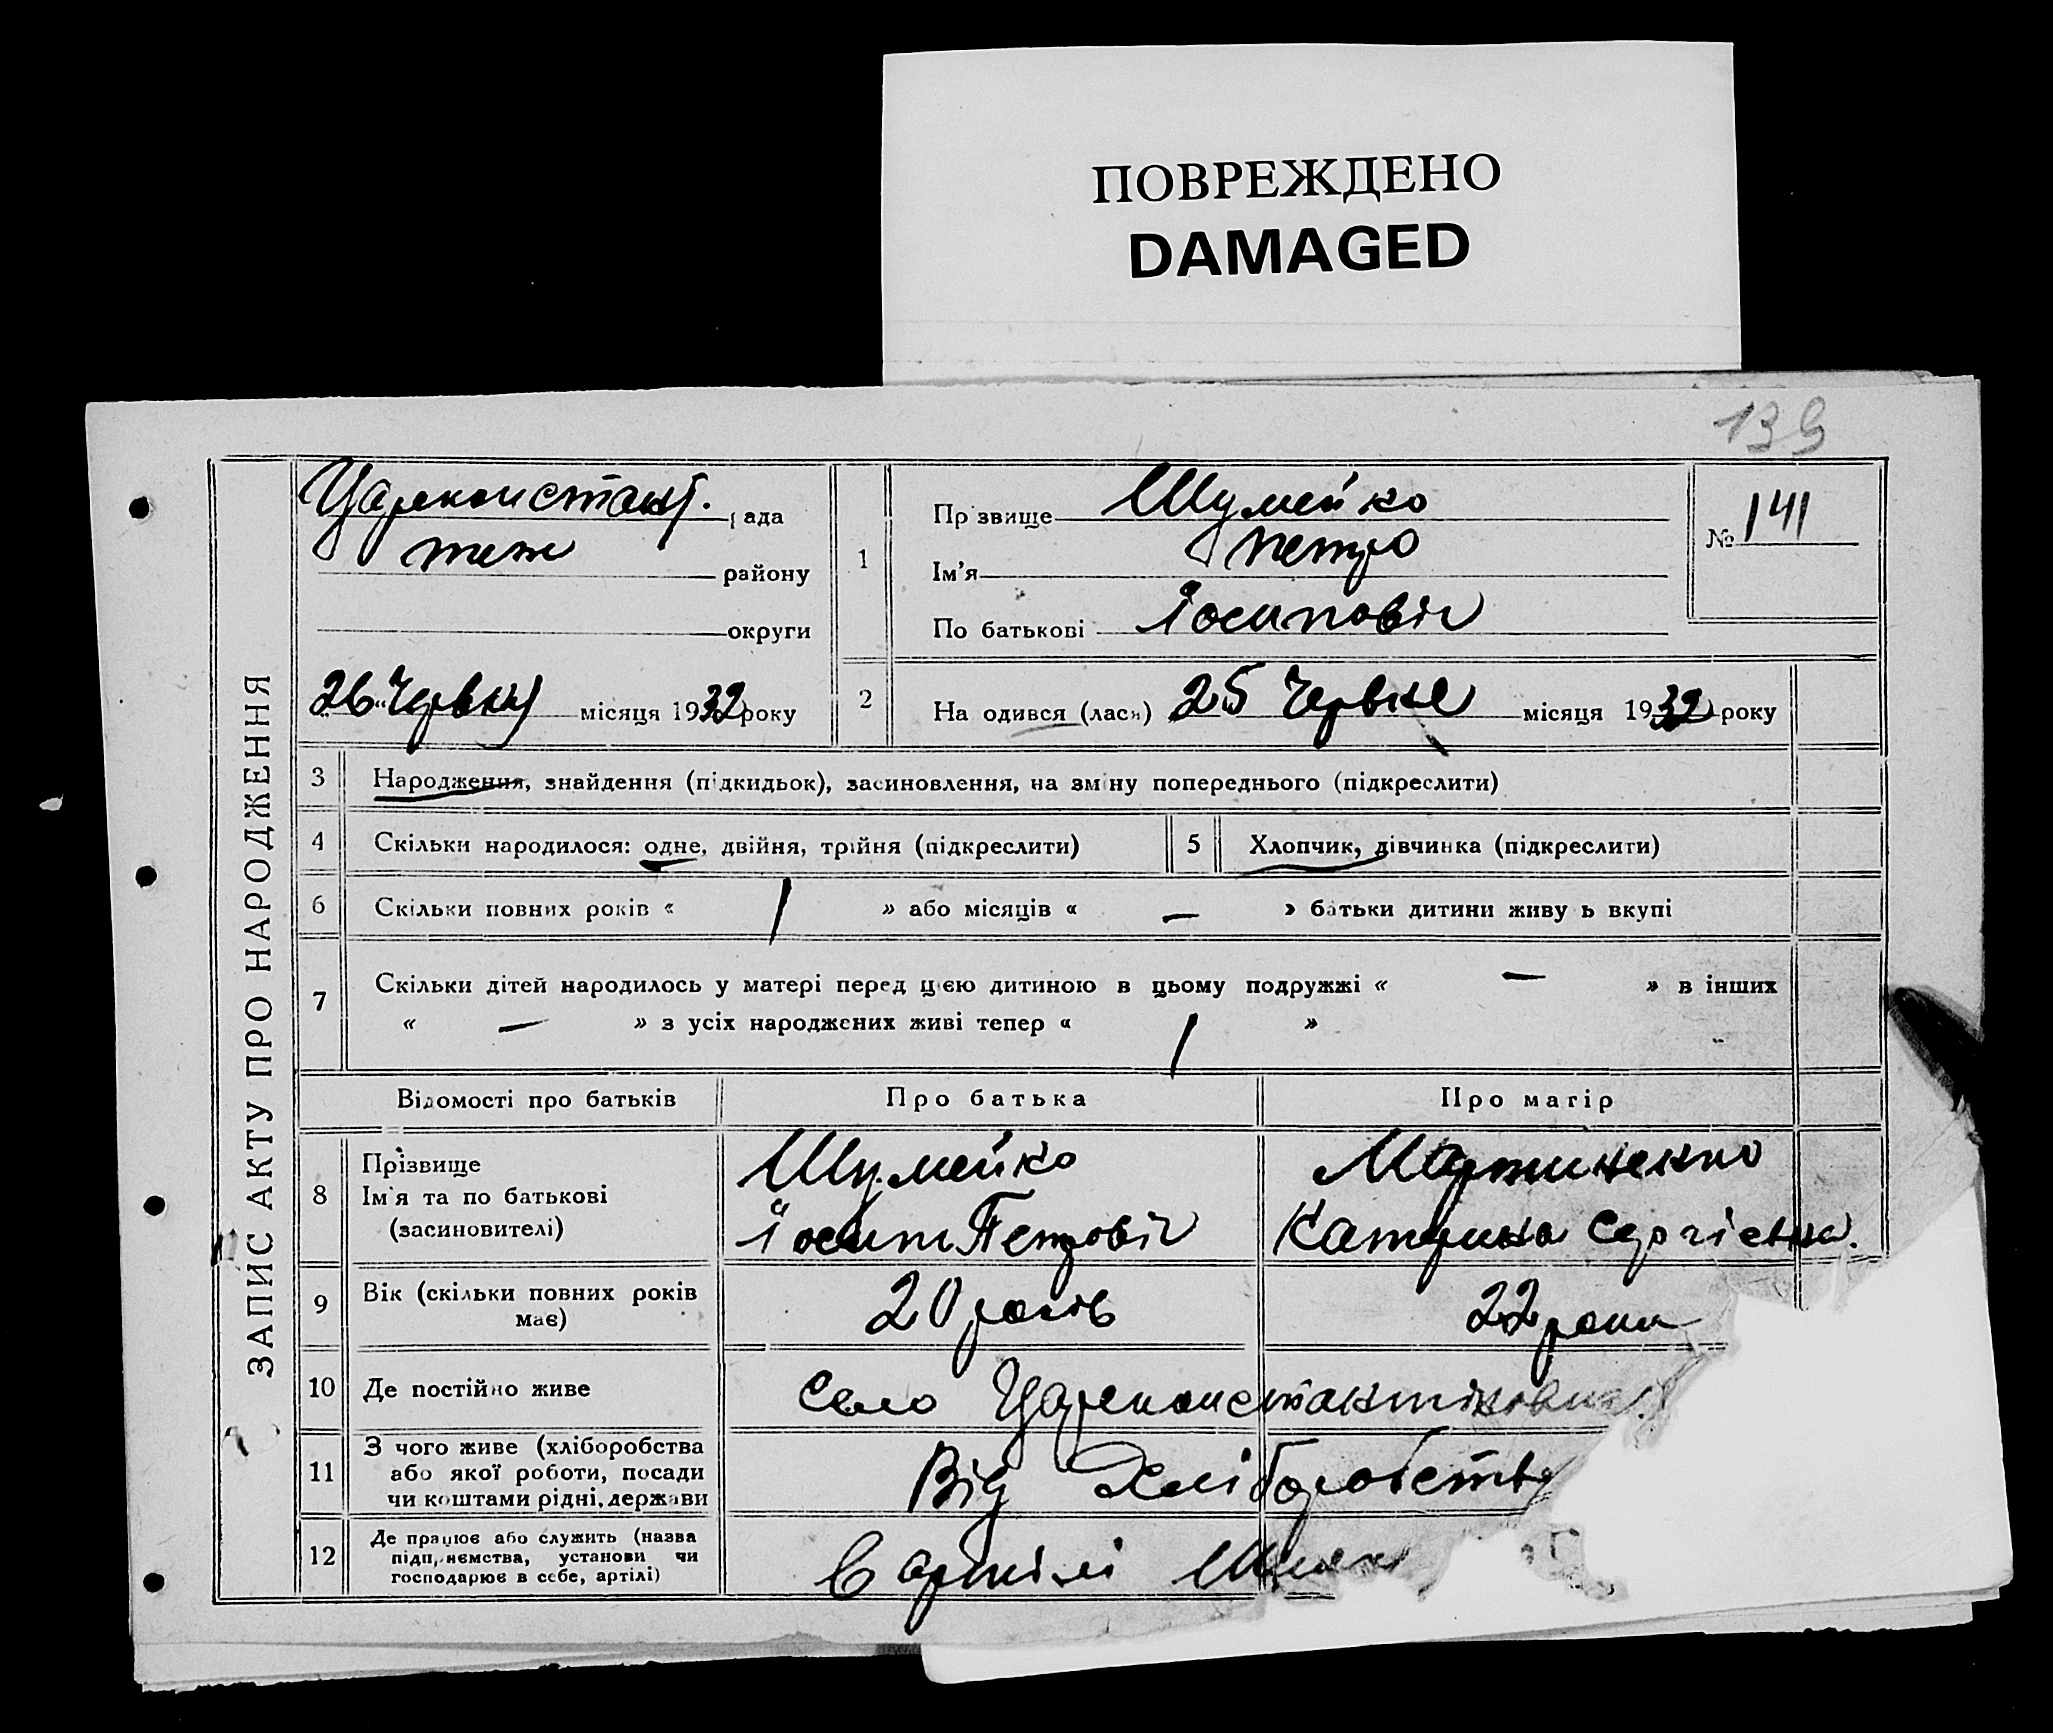 ПОВРЕЖДЕНО
DAMAGED
139
ЗАПИС АКТУ ПРО НАРОДЖЕННЯ
Царекконстант. рада
теж району
округи
26 Червня місяця 1932 року
1
Прізвище Шумейко
Ім'я Петро
По батькові Іосипович
№ 141
2
На одився (лася) 25 Червня місяця 1932 року
3 Народження, знайдення (підкидьок), засиновлення, на зміну попереднього (підкреслити)
4 Скільки народилося: одне, двійня, трійня (підкреслити) 5 Хлопчик, дівчинка (підкреслити)
6 Скільки повних років « 1 » або місяців « — » батьки дитини живу ь вкупі
7 Скільки дітей народилось у матері перед цією дитиною в цьому подружжі « — » в інших
« — » з усіх народжених живі тепер « 1 »
Відомості про батьків Про батька Про матір
8 Прізвище
Ім'я та по батькові
(засиновителі)
Шумейко
Іосип Петровіч
Мартиненко
Катерина Сергієвна.
9 Вік (скільки повних років
має)
20 років 22 роки
10 Де постійно живе Село Царекконстантіновка
11 З чого живе (хліборобства
або якої роботи, посади
чи коштами рідні, держави
Від Хліборобства
12 Де працює або служить (назва
підприємства, установи чи
господарює в себе, артілі)
в артілі